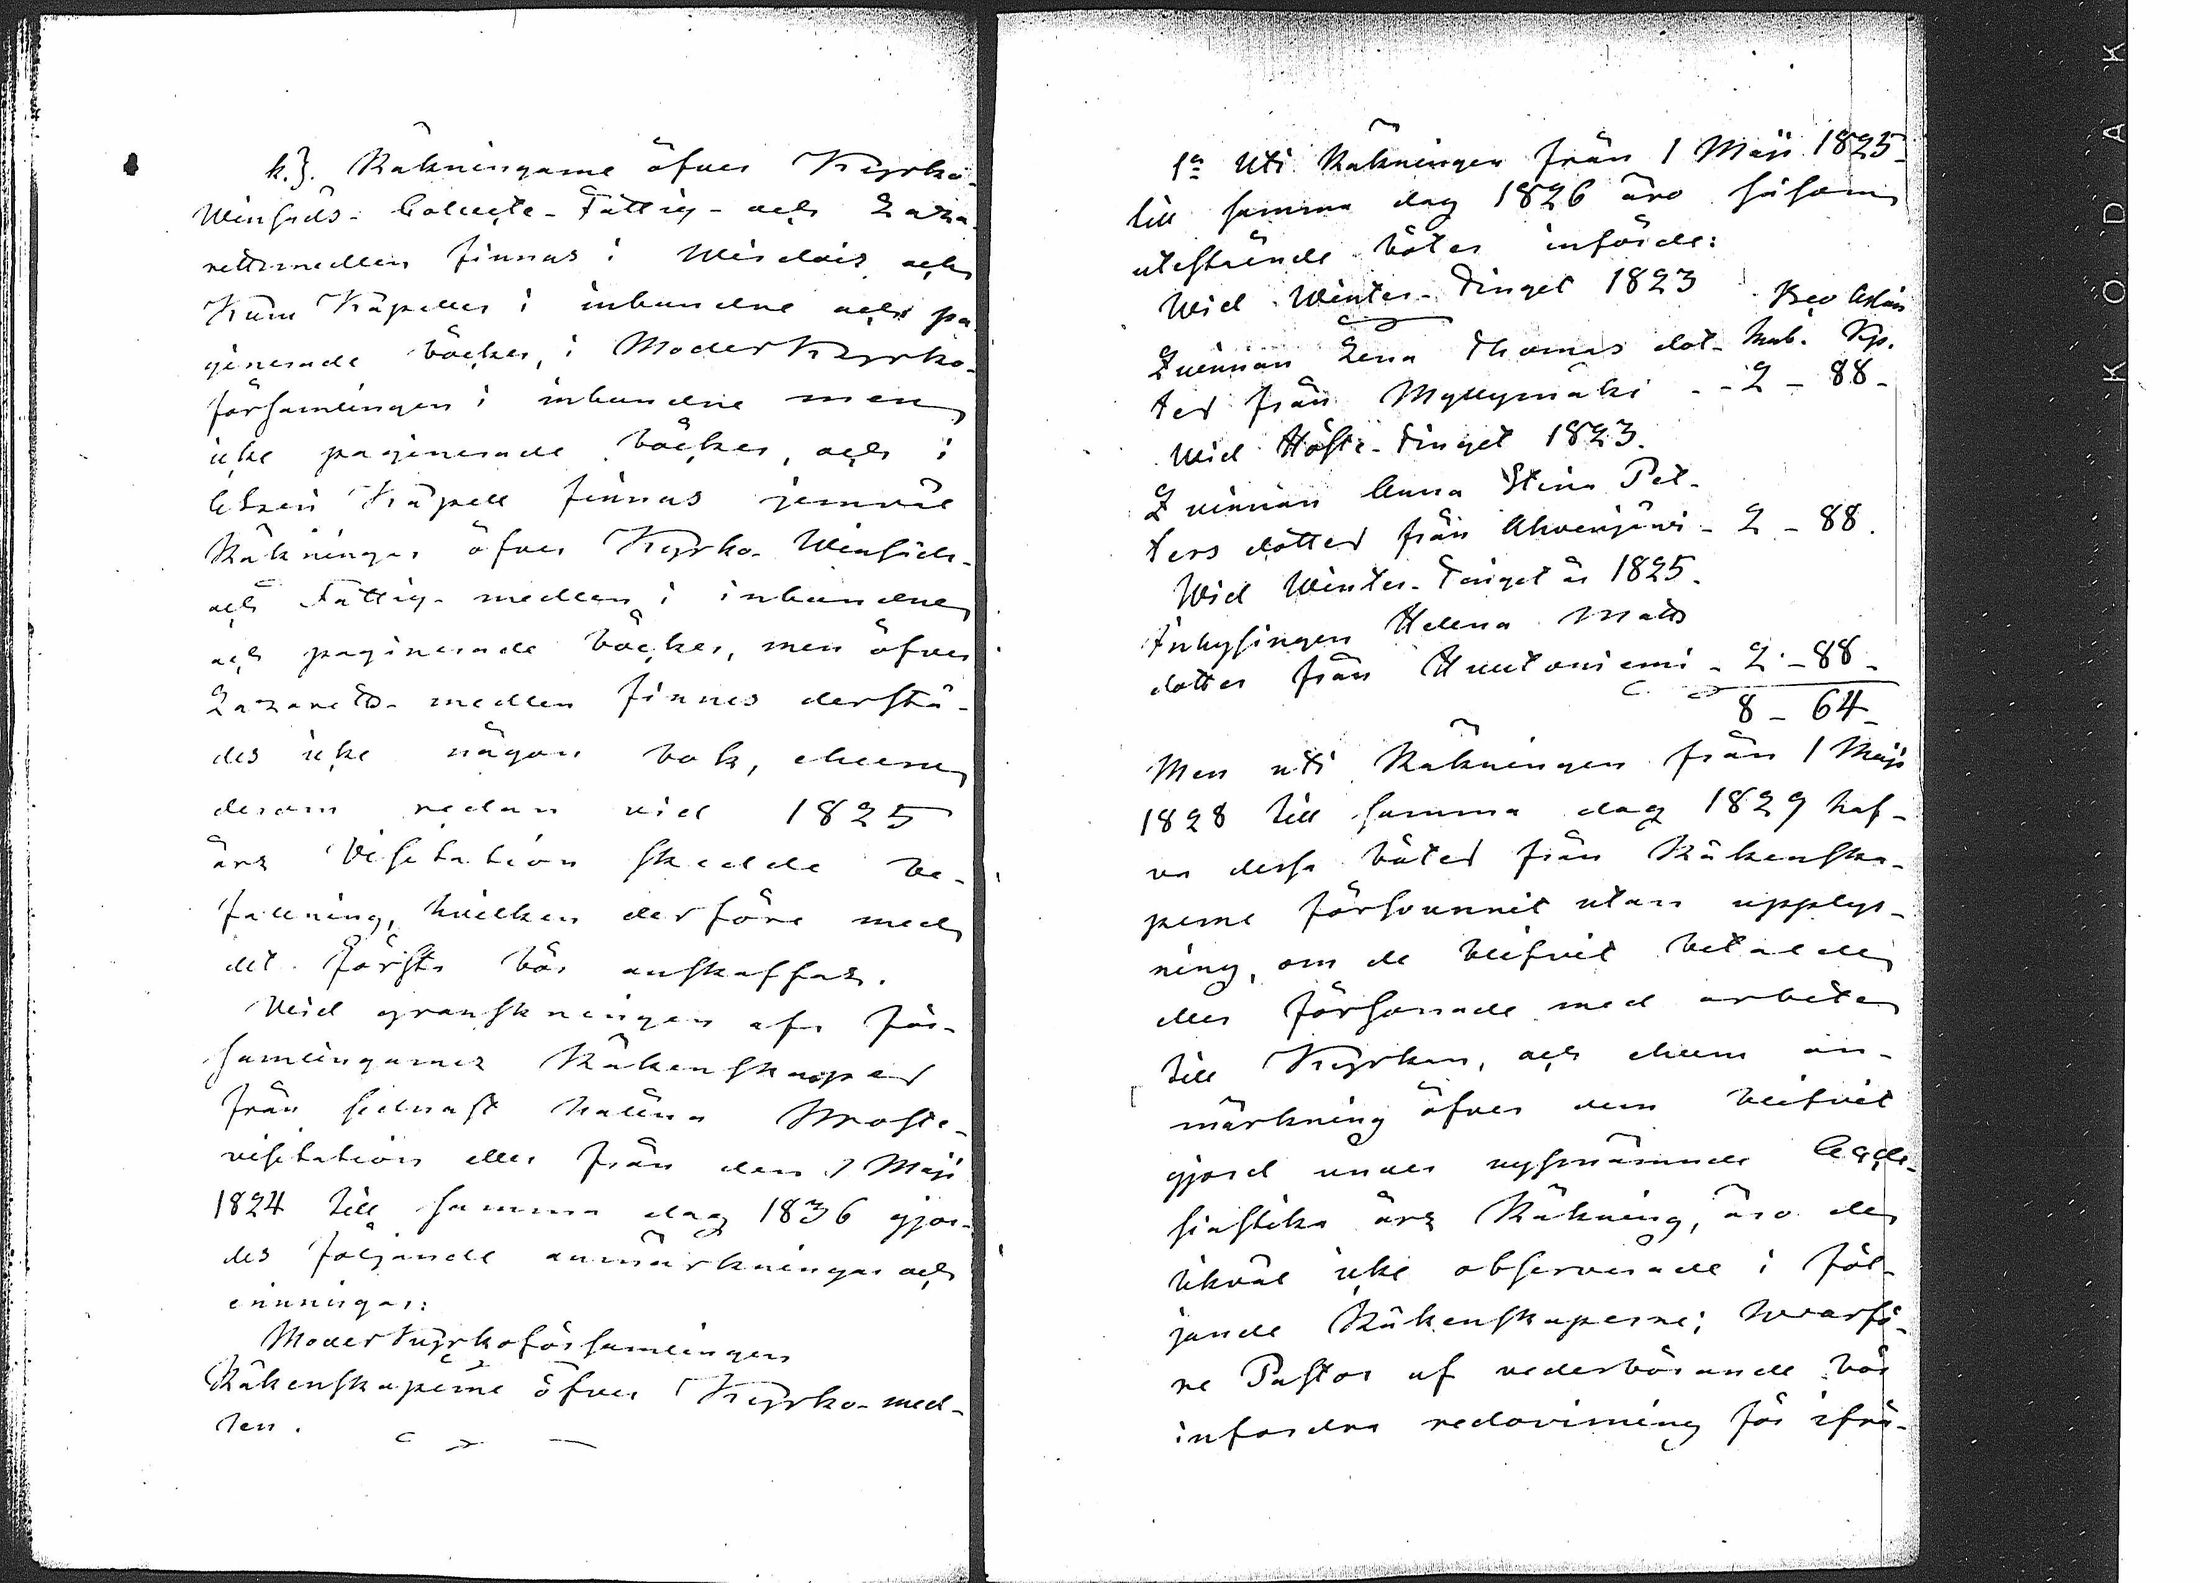 k.). Räkningarne öfver Kyrko-
Winsäds- Collecte- Fattig- och Laza-
rettsmedlen finnas i Wirdois och
Kuru Kapeller i inbundne och pa-
ginerade böcker, i Moderkyrko-
församlingen i inbundne men
icke paginerade böcker, och i
Etseri Kapell finnas jemväl
Räkningar öfver Kyrko- Winsäds-
och Fattig- medlen i inbundne
och paginerade böcker, men öfver
Lazaretts- medlen finnes derstä-
des icke någon bok, ehuru
derom redan vid 1825
års Visitation skedde be-
fallning, hvilken derföre med
det första bör anskaffas.
Wid granskningen af för-
samlingarnes Räkenskaper
från sednast hållna Proste-
visitation eller från den 1 Maji
1824 till samma dag 1836 gjor-
des följande anmärkningar och
erinringar:
Moderkyrkoförsamlingens
Räkenskaperne öfver Kyrko- med-
len.
1º Uti Räkningen från 1 Maji 1825
till samma dag 1826 äro såsom
utestående böter införde:
Wid Winter- Tinget 1823
Bco Assign
Qvinnan Lena Thomas dot- Rub. Kp.
ter från Myllymäki - - 2 - 88 -
Wid Höste- Tinget 1823.
Qvinnan Anna Stina Pet-
ters dotter från Ahvenjärvi - 2 - 88.
Wid Winter- Tinget år 1825.
Inhysingen Helena Matts
dotter från Huutoniemi - 2 - 88 -
8 - 64 -
Men uti Räkningen från 1 Maji
1828 till samma dag 1829 haf-
va dessa böter från Räkenska-
perne försvunnit utan upplys-
ning, om de blifvit betalde
eller försonade med arbete
till Kyrkan, och ehuru an-
märkning öfver dem blifvit
gjord under nyssnämnde Eccle-
siastika års Räkning, äro de
likväl icke observerade i föl-
jande Räkenskaperne; hvarfö-
re Pastor af vederbörande bör
infordra redovisning för ifrå-